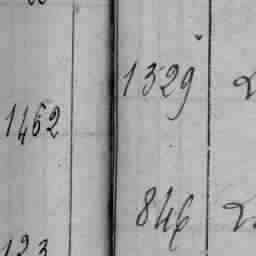 1329
1462
846
123